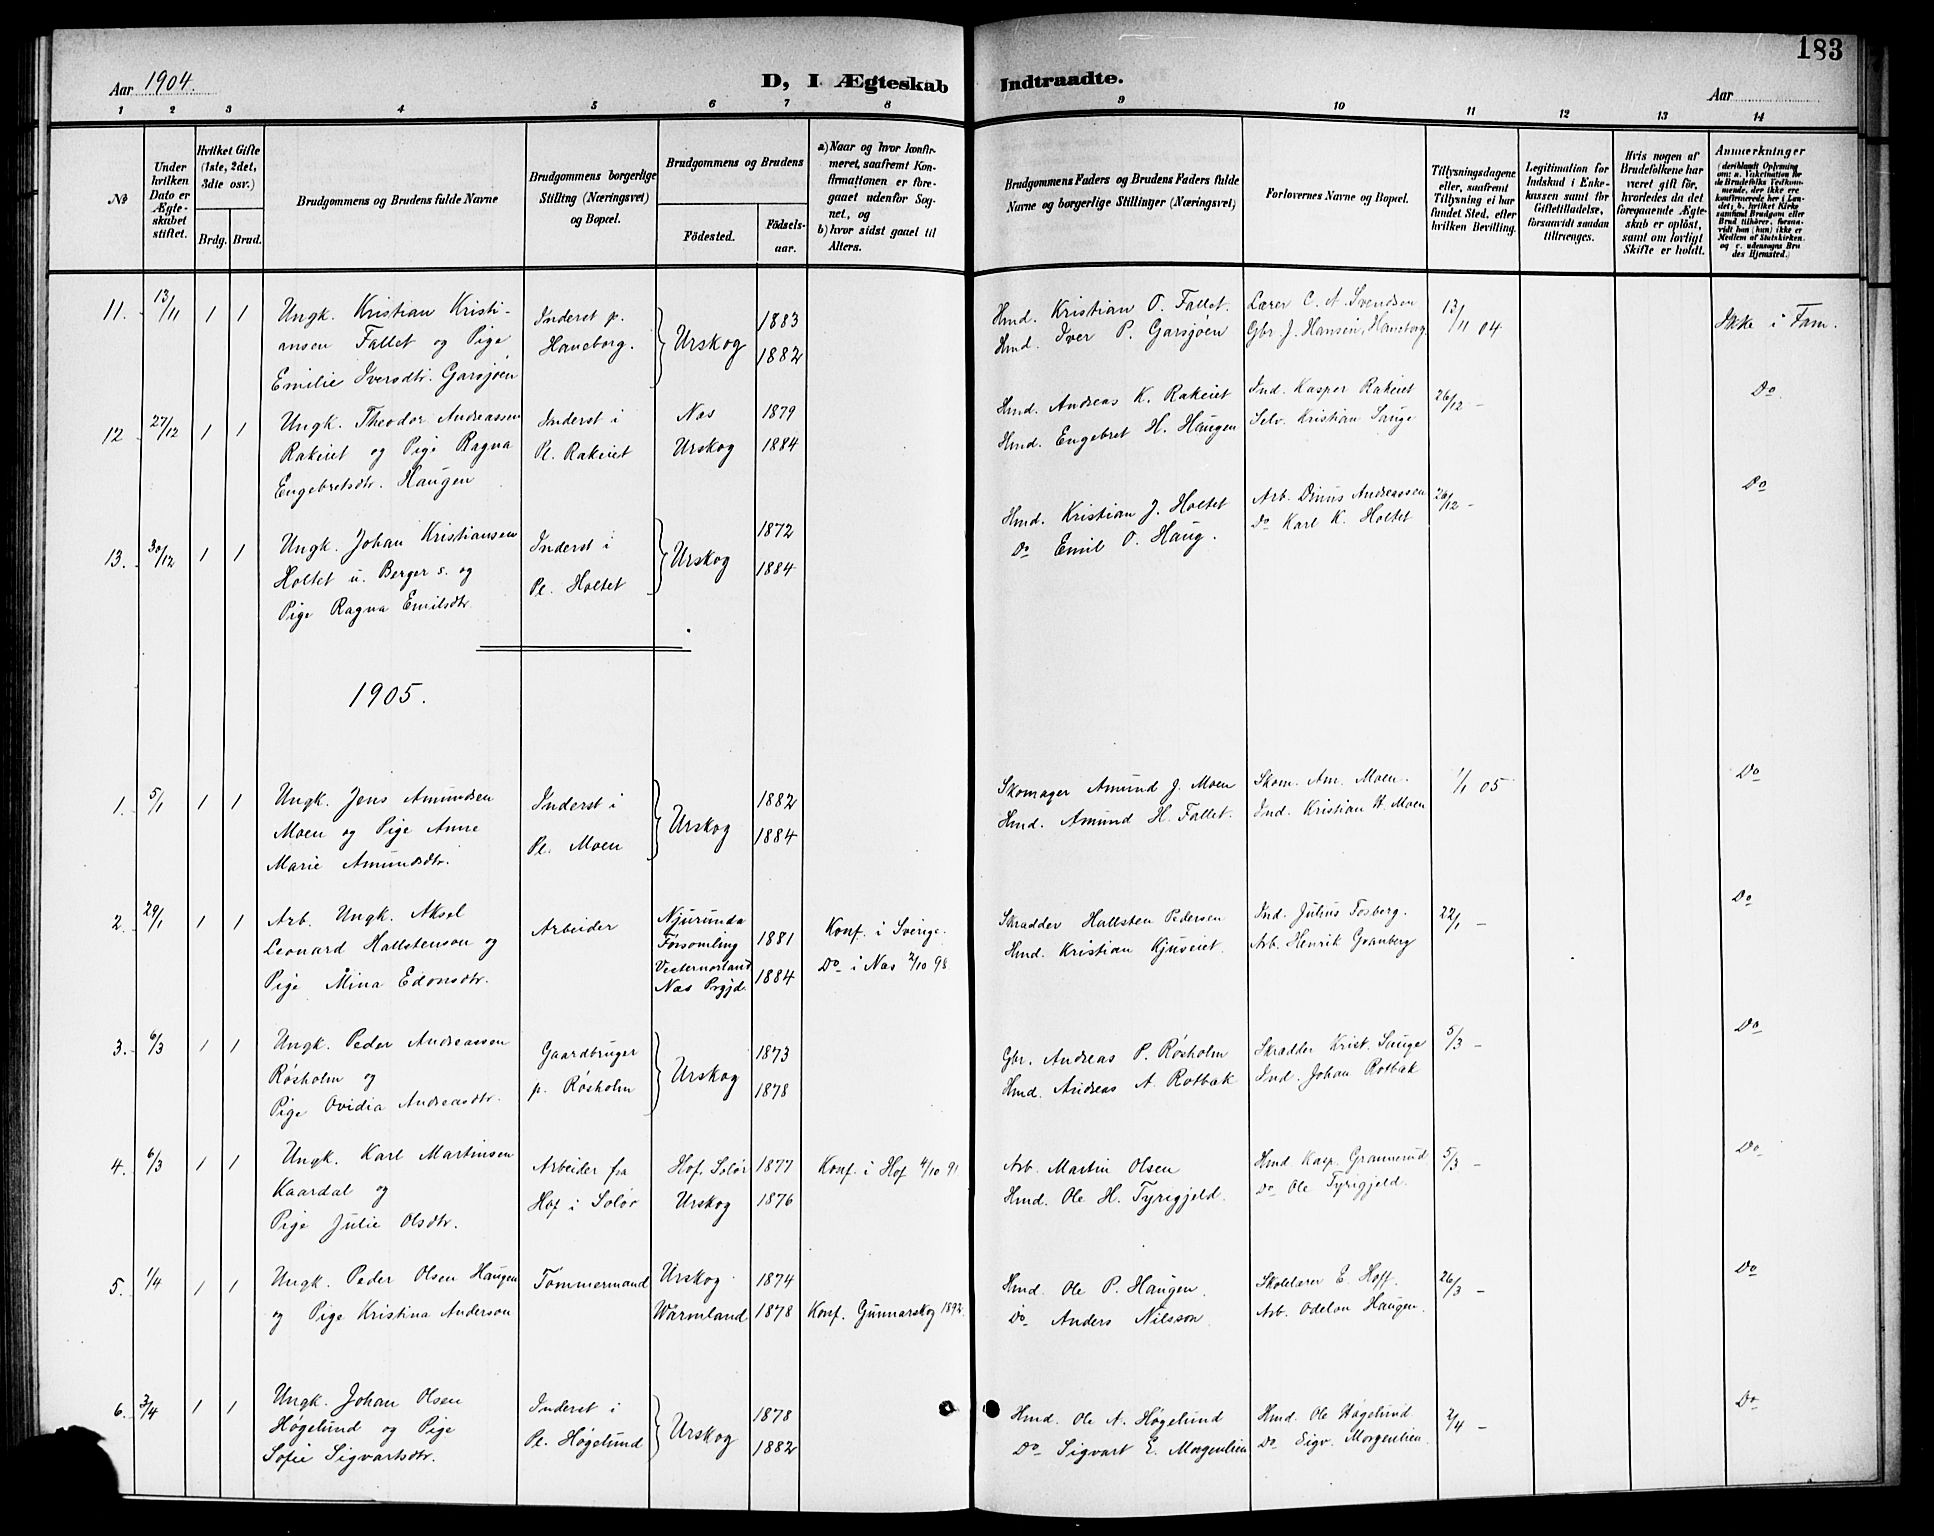 183
Aar 1904. D, I Ægteskab Indtraadte. Aar
1 2 3 4 5 6 7 8 9 10 11 12 13 14
No
Under hvilken Dato er Ægteskabet stiftet.
Hvilket Gifte (1ste, 2det, 3die osv.)
Brdg. Brud.
Brudgommens og Brudens fulde Navne
Brudgommens borgerlige Stilling (Næringsvei) og Bopæl.
Brudgommens og Brudens
Fødested. Fødselsaar.
a) Naar og hvor konfirmeret, saafremt Konfirmationen er foregaaet udenfor Sognet, og
b) hvor sidst gaaet til Alters.
Brudgommens Faders og Brudens Faders fulde Navne og borgerlige Stillinger (Næringsvei)
Forlovernes Navne og Bopæl.
Tillysningsdagene eller, saafremt Tillysning ei har fundet Sted, efter hvilken Bevilling.
Legitimation for Indskud i Enkekassen samt for Giftetilladelse, forsaavidt saadan tiltrænges.
Hvis nogen af Brudefolkene har været gift før, hvorledes da det foregaaende Ægteskab er opløst, samt om lovligt Skifte er holdt.
Anmerkninger (deriblandt Oplysning om: a. Vakcination for de Brudefolks Vedkommende, der ikke ere konfirmerede her i Landet; b. hvilket Kirkesamfund Brudgom eller Brud tilhører, forsaavidt han (hun) ikke er Medlem af Statskirken, og c. udensogns Brudes Hjemsted.)
11. 13/11 1 1 Ungk. Kristian Kristi- Inderst p. Urskog 1883 Hmd. Kristian O. Fallet. Lærer C. A. Svendsen 13/11 04 Ikke i Fam.
ansen Fallet og Pige Haneborg. 1882 Hmd. Iver P. Garsjøen Gbr. J. Hansen, Haneborg
Emilie Iversdtr. Garsjøen
12 27/12 1 1 Ungk. Theodor Andreassen Inderst i Nas 1879 Hmd. Andreas K. Rakeiet Ind. Kasper Rakeiet 26/12 - Do
Rakeiet og Pige Ragna Pl. Rakeiet Urskog 1884 Hmd. Engebret H. Haugen Selv. Kristian Sauge
Engebretsdtr. Haugen
13. 30/12 1 1 Ungk. Johan Kristiansen Inderst i Urskog 1872 Hmd. Kristian J. Holtet Arb. Dinus Andreassen 26/12 - Do
Holtet u. Berger s. og Pl. Holtet 1884 Do Emil O. Haug. Do Karl K. Holtet
Pige Ragna Emilsdtr.
1905.
1. 5/1 1 1 Ungk. Jens Amundsen Inderst i Urskog 1882 Skomager Amund J. Moen Skom. Am. Moen. 1/1 05 Do
Moen og Pige Anne Pl. Moen 1884 Hmd. Amund H. Fallet. Ind. Kristian H. Moen
Marie Amundsdtr.
2. 29/1 1 1 Arb. Ungk. Aksel Arbeider Njurunda Forsomling 1881 Konf. i Sverige. Skradder Hallsten Pedersen Ind. Julius Fosberg. 22/1 - Do
Leonard Hallstenson og Vesternorland Do i Nas 2/10 98 Hmd. Kristian Kjuseiet. Arb. Henrik Granberg
Pige Mina Edonsdtr. Nas Prgjd. 1884
3. 6/3 1 1 Ungk. Peder Andreassen Gaardbruger Urskog 1873 Gbr. Andreas P. Røsholm Skradder Krist. Sauge 5/3 - Do
Røsholm og p. Røsholm 1878 Hmd. Andreas A. Rotbak Ind. Johan Rotbak
Pige Ovidia Andreasdtr.
4. 6/3 1 1 Ungk. Karl Martinsen Arbeider fra Hof, Solør 1877 Konf. i Hof 4/10 91 Arb. Martin Olsen Hmd. Kasp. Grannerud 5/3 - Do
Kaardal og Hof i Solør Urskog 1876 Hmd. Ole H. Tyrigjeld. Do Ole Tyrigjeld.
Pige Julie Olsdtr.
5. 1/4 1 1 Ungk. Peder Olsen Haugen Tømmermand Urskog 1874 Hmd. Ole P. Haugen. Skolelærer E. Hoff. 26/3 - Do
og Pige Kristina Anderson Warmland 1878 Konf. Gunnarskog 1892. Do Anders Nilsson. Arb. Odelan Haugen.
6. 3/4 1 1 Ungk. Johan Olsen Inderst i Urskog 1878 Hmd. Ole A. Høgelund Hmd. Ole Høgelund 2/4 - Do
Høgelund og Pige Pl. Høgelund 1882 Do Sigvart E. Morgenlien Do Sigv. Morgenlien.
Sofie Sigvartsdtr.